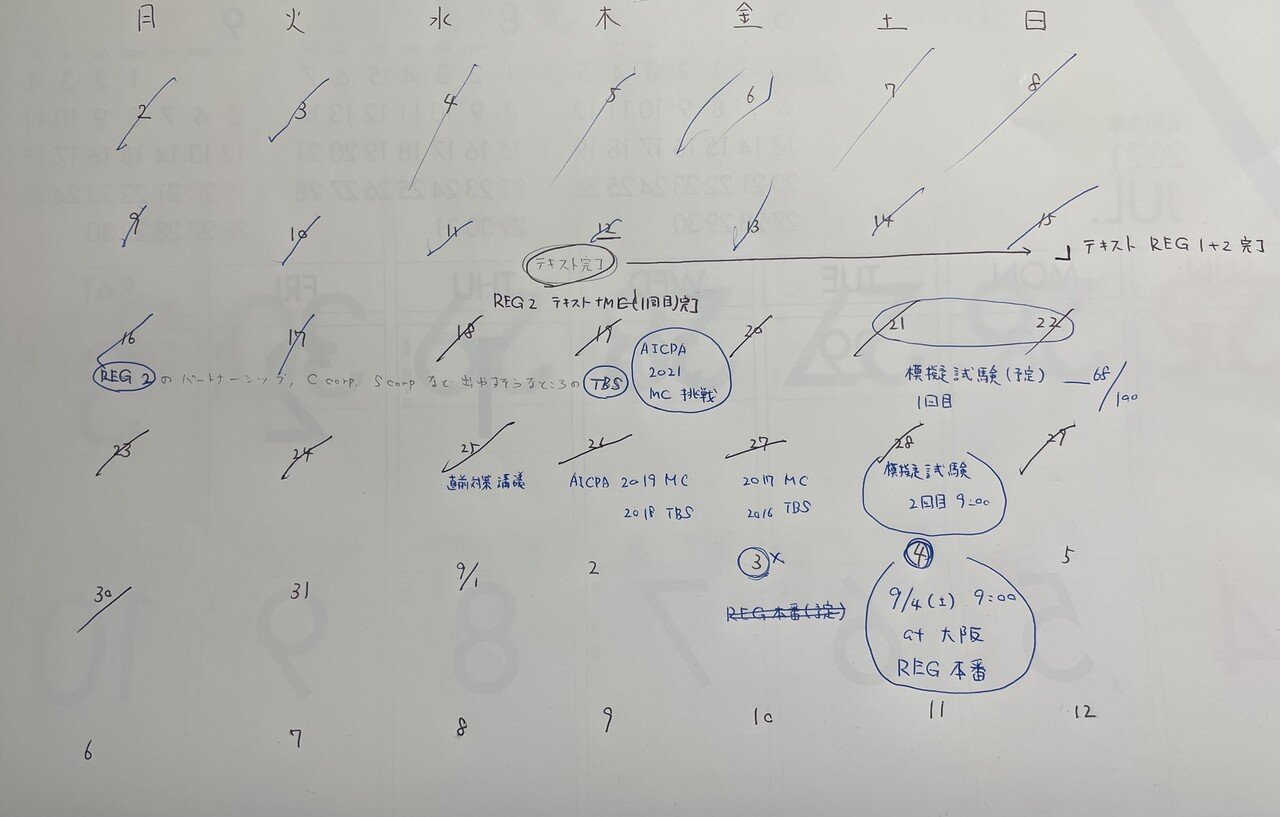 月 火 水 木 金 土 日
2 3 4 5 6 7 8
9 10 11 12 13 14 15
テキスト完了 テキスト REG 1+2 完了
REG 2 テキスト+MC(1回目)完了
16 17 18 19 20 21 22
REG 2 の パートナーシップ, C corp, S corp など 出やすそうなところの TBS
AICPA
2021
MC 挑戦
模擬試験(予定) 68/100
1回目
23 24 25 26 27 28 29
直前対策 講義
AICPA 2019 MC
2018 TBS
2017 MC
2016 TBS
模擬試験
2回目 9:00
30 31 9/1 2 3 × 4 5
REG 本番(予定)
9/4(土) 9:00
at 大阪
REG 本番
6 7 8 9 10 11 12